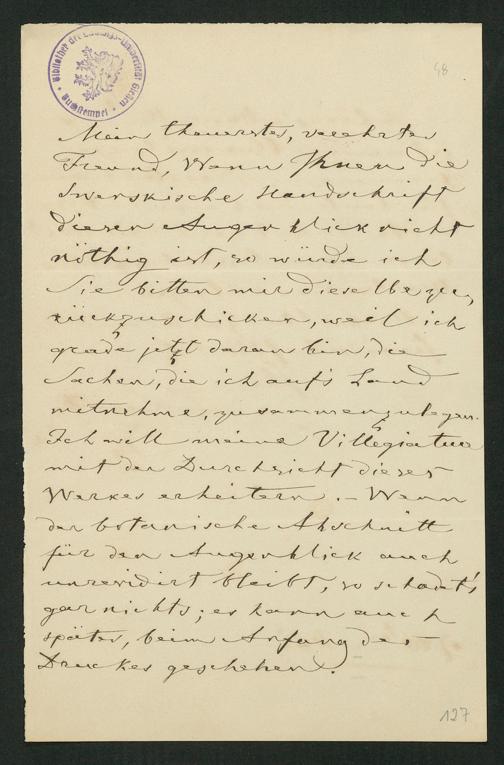 Bibliothek der Ludwigs-Universität Gießen
48
Mein theuerster, verehrter
Freund, Wenn Ihnen die
Swerskische Handschrift
diesen Augenblick nicht
nöthig ist, so würde ich
Sie bitten mir dieselbe zu,
rückzuschicken, weil ich
grade jetzt daran bin, die
Sachen, die ich aufs Land
mitnehme, zusammenzulegen.
Ich will meine Villegiatur
mit der Durchsicht dieses
Werkes erheitern. – Wenn
der botanische Abschnitt
für den Augenblick auch
unrevidirt bleibt, so schadt's
gar nichts; es kann auch
später, beim Anfang des
Druckes geschehen.
127